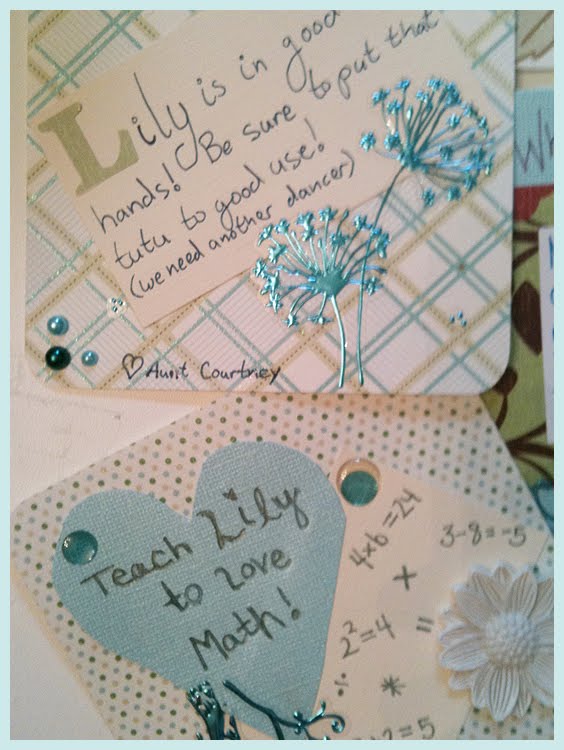 Lily is in good
hands! Be sure to put that
tutu to good use!
(we need another dancer)
♡ Aunt Courtney
Teach Lily
to Love
Math!
4x6=24
3-8=-5
x
2²=4 =
÷ *
+2=5